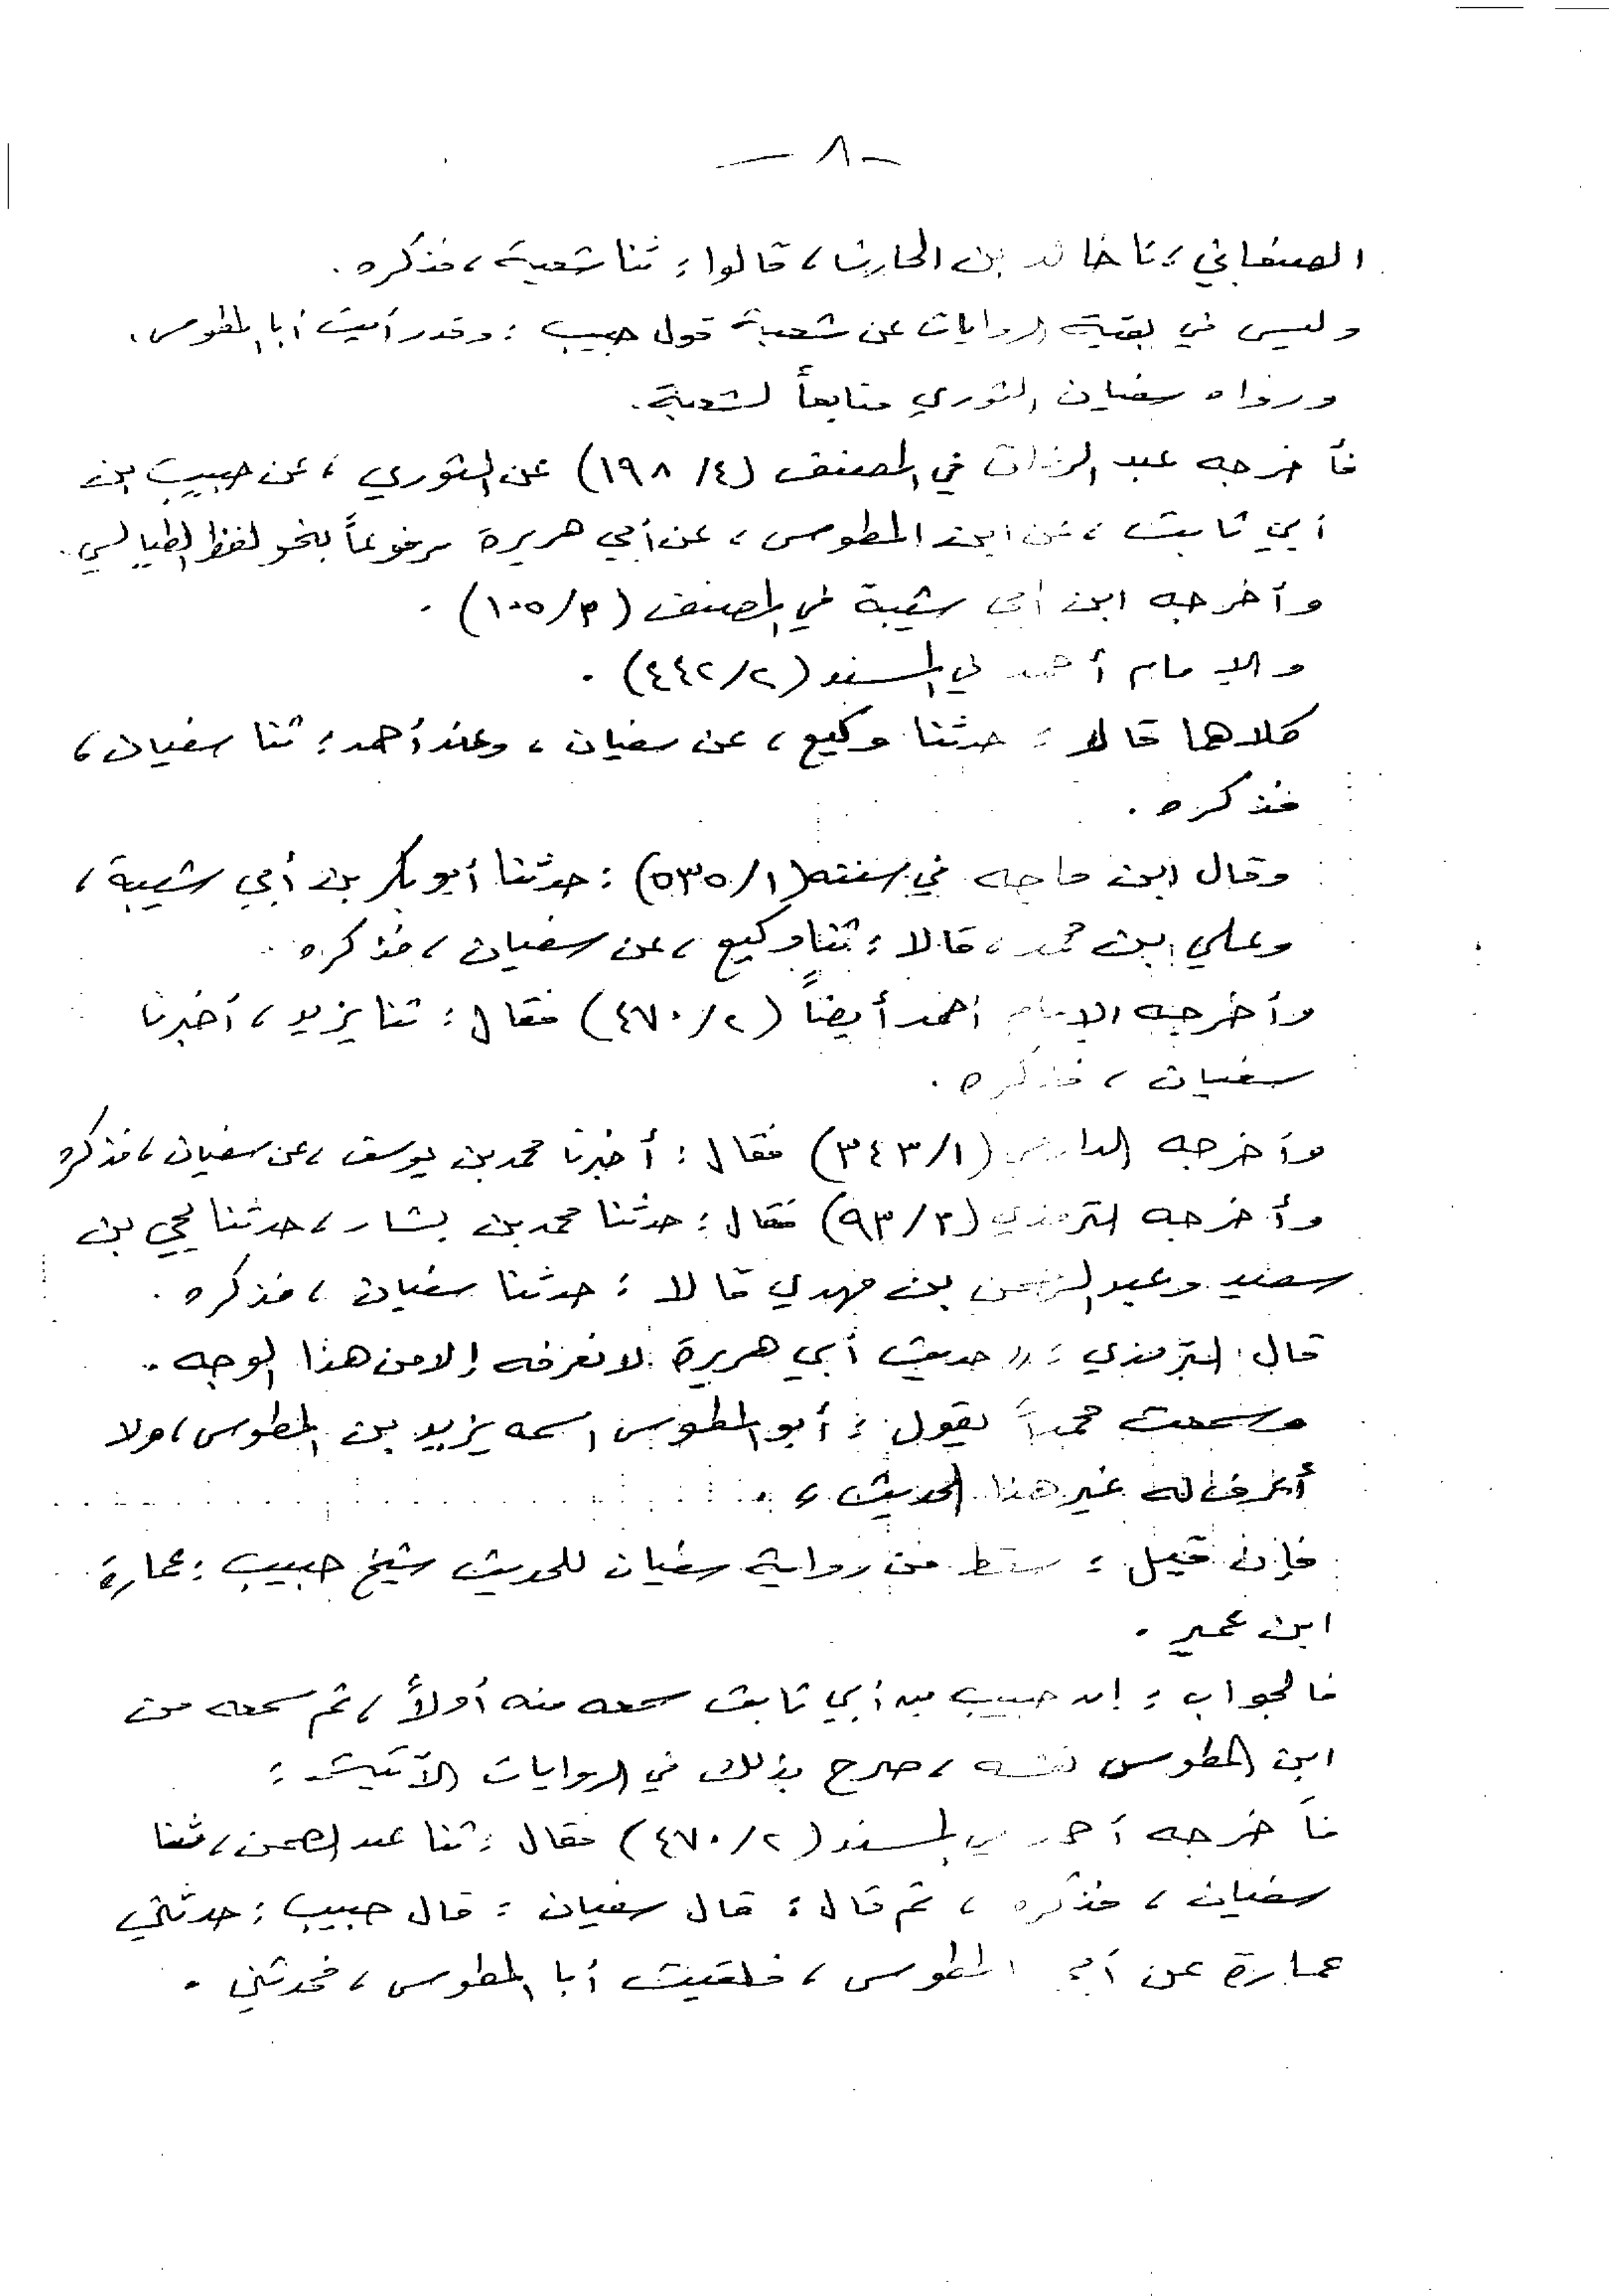 - ٨ -
الصنعاني، نا خالد بن الحارث، قالوا: ثنا شعبة، فذكره.
وليس في بقية الروايات عن شعبة قول حبيب: وقد رأيت أبا المطوس.
ورواه سفيان الثوري متابعاً لشعبة.
فأخرجه عبد الرزاق في المصنف (٤/ ١٩٨) عن الثوري، عن حبيب بن
أبي ثابت، عن ابن المطوس، عن أبي هريرة مرفوعاً بنحو لفظ الطيالسي.
وأخرجه ابن أبي شيبة في المصنف (٣/ ١٠٥).
والإمام أحمد في المسند (٢/ ٤٤٢).
كلاهما قالا: حدثنا وكيع، عن سفيان، وعند أحمد: ثنا سفيان،
فذكره.
وقال ابن ماجه في سننه (١/ ٥٣٥): حدثنا أبو بكر بن أبي شيبة،
وعلي بن محمد، قالا: ثنا وكيع، عن سفيان، فذكره.
وأخرجه الإمام أحمد أيضاً (٢/ ٤٧٠) فقال: ثنا يزيد، أخبرنا
سفيان، فذكره.
وأخرجه الدارمي (١/ ٣٤٣) فقال: أخبرنا محمد بن يوسف، عن سفيان، فذكره
وأخرجه الترمذي (٣/ ٩٣) فقال: حدثنا محمد بن بشار، حدثنا يحيى بن
سعيد وعبد الرحمن بن مهدي قالا: حدثنا سفيان، فذكره.
قال الترمذي: «حديث أبي هريرة لا نعرفه إلا من هذا الوجه.
وسمعت محمداً يقول: أبو المطوس اسمه يزيد بن المطوس، ولا
أعرف له غير هذا الحديث».
فإن قيل: سقط من رواية سفيان للحديث شيخ حبيب: عمارة
ابن عمير.
فالجواب: إن حبيب بن أبي ثابت سمعه منه أولاً، ثم سمعه من
ابن المطوس نفسه، صرح بذلك في الروايات الآتية:
فأخرجه أحمد في المسند (٢/ ٤٧٠) فقال: ثنا عبد الرحمن، ثنا
سفيان، فذكره، ثم قال: قال سفيان: قال حبيب: حدثني
عمارة عن أبي المطوس، فلقيت أبا المطوس، فحدثني.